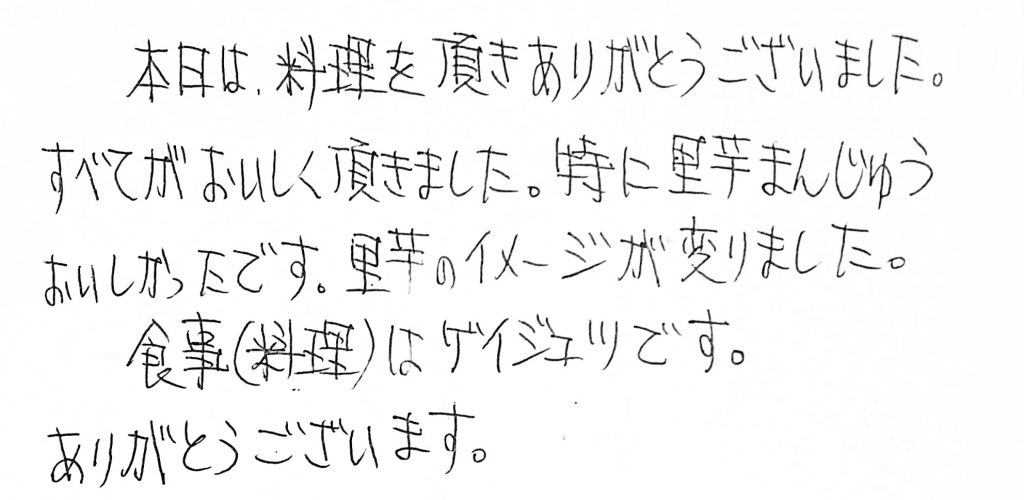 本日は、料理を頂きありがとうございました。
すべてがおいしく頂きました。特に里芋まんじゅう
おいしかったです。里芋のイメージが変りました。
食事(料理)はゲイジュツです。
ありがとうございます。